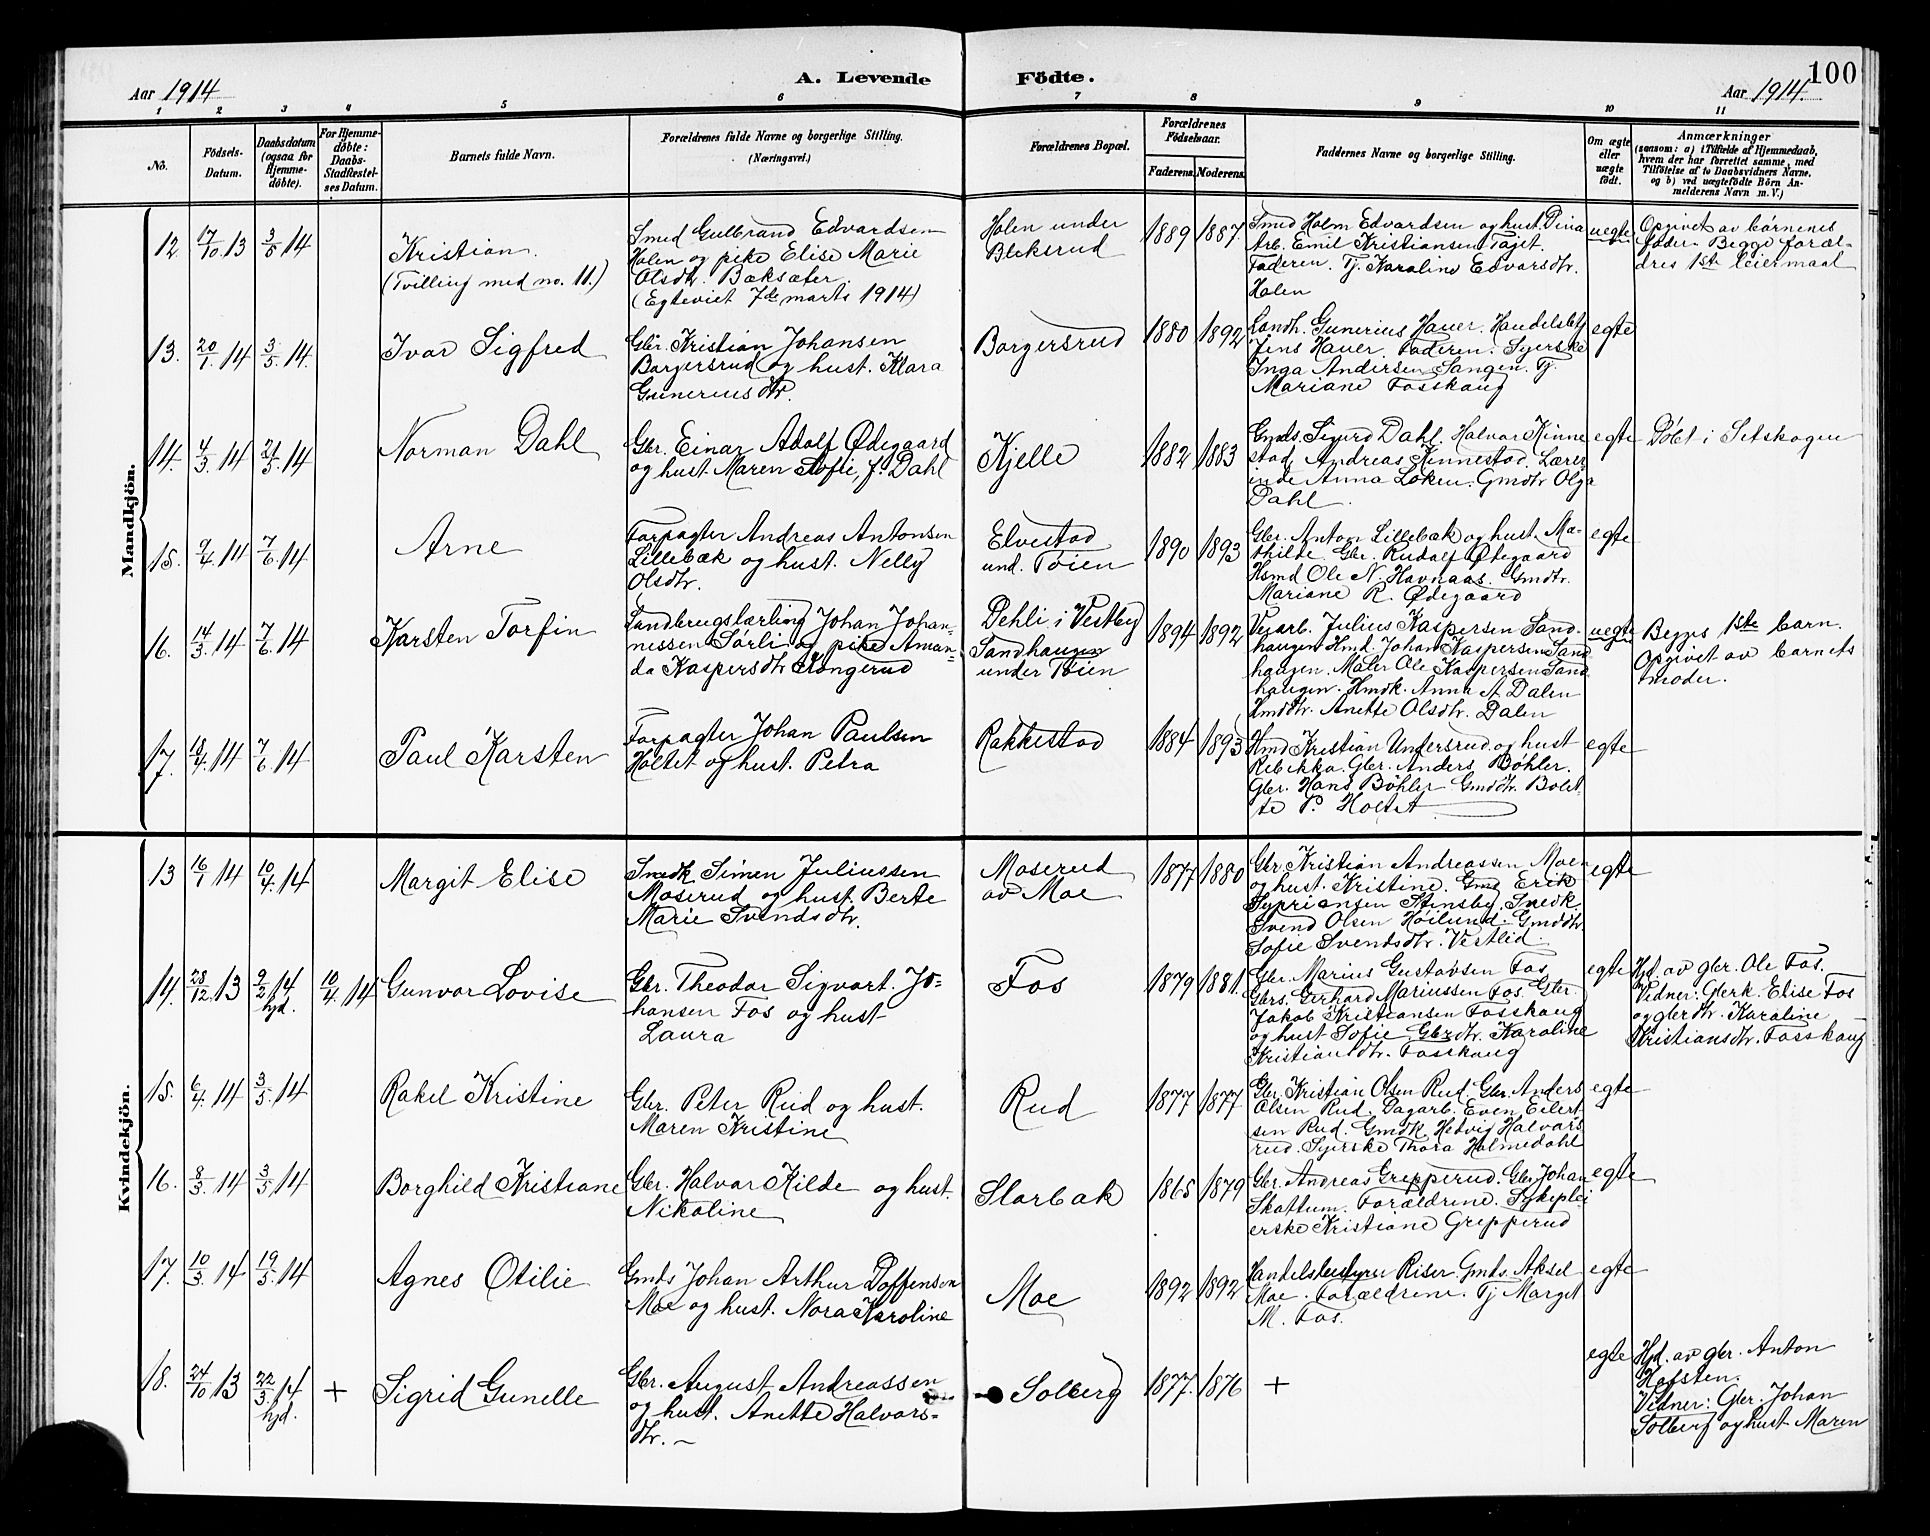 Aar 1914
A. Levende
Födte.
Aar 1914.
100
1 2 3 4 5 6 7 8 9 10 11
No.
Födsels-
Datum.
Daabsdatum
(ogsaa for
Hjemme-
döbte).
For Hjemme-
döbte:
Daabs-
Stadfæstel-
ses Datum.
Barnets fulde Navn.
Forældrenes fulde Navne og borgerlige Stilling.
(Næringsvei.)
Forældrenes Bopæl.
Forældrenes
Födselsaar.
Faderens.
Moderens.
Faddernes Navne og borgerlige Stilling.
Om ægte
eller
uægte
födt.
Anmærkninger
(saasom: a) i Tilfælde af Hjemmedaab,
hvem der har forrettet samme, med
Tilföielse af to Daabsvidners Navne,
og b) ved uægtefödte Börn An-
melderens Navn m. V.)
Mandkjön.
12. 17/10 13 3/5 14
Kristian.
(Tvilling med no. 11.)
Smed Gulbrand Edvardsen
Holen og pike Elise Marie
Olsdtr. Bæksæter.
(Egteviet 7de marts 1914)
Holen under
Bleksrud
1889 1887.
Smed Holm Edvardsen og hust. Dina
Arb. Emil Kristiansen Tajet.
Faderen. Tj. Karoline Edvarsdtr.
Holen
uegte
Opgivet av børnenes
fader. Begge foræl-
dres 1ste leiermaal
13. 20/1 14 3/5 14.
Ivar Sigfred
Gbr. Kristian Johansen
Borgersrud og hust. Klara
Guneriusdtr.
Borgersrud
1880 1892
Landh. Gunerius Hauer. Handelsbetj.
Jens Hauer. Faderen. Syerske
Inga Andersen Sangen. Tj.
Mariane Fosskaug
egte
14. 4/3 14 24/5 14
Norman Dahl
Gbr. Einar Adolf Ødegaard
og hust. Maren Sofie, f. Dahl
Kjelle
1882 1883
Gmds. Sigurd Dahl. Halvor Kinne
stad. Andreas Kinnestad. Lærer
inde Anna Løken. Gmdtr. Olga
Dahl
egte
Døbt i Setskogen
15. 9/4 14 7/6 14.
Arne
Forpagter Andreas Antonsen
Lillebæk og hust. Nelly
Olsdtr.
Elvestad
und. Tøien
1890 1893
Gbr. Anton Lillebæk og hust. Ma-
thilde. Gbr. Rudolf Ødegaard
Hsmd Ole N. Havnaas. Gmdtr.
Mariane R. Ødegaard
egte
16. 14/3 14 7/6 14
Karsten Torfin
Landbrugslærling Johan Johan-
nessen Sørli og pike Aman-
da Kaspersdtr Kongerud
Dehli i Vestby
Sandhaugen
under Tøien
1894 1892
Veiarb. Julius Kaspersen Sand-
haugen Hmd. Johan Kaspersen Sand
haugen. Maler Ole Kaspersen Sand
haugen. Hmdk. Anna A. Dalen
Hmddtr. Anette Olsdtr. Dalen
uegte
Begges 1ste barn.
Opgivet av barnets
moder.
17. 18/4 14 7/6 14
Paul Karsten
Forpagter Johan Paulsen
Holtet og hust. Petra
Rakkestad
1884 1893
Hmd Kristian Undersrud og hust
Rebekka. Gbr. Anders Bøhler.
Gbr. Hans Bøhler Gmddtr. Bolet-
te P. Holtet
egte
Kvindekjön.
13 16/1 14 10/4 14
Margit Elise
Smedk Simen Juliussen
Moserud og hust. Berte
Marie Svendsdtr.
Moserud
av Moe
1877 1880
Gbr. Kristian Andreassen Moen
og hust. Kristine. Gmd Erik
Sypriansen Stensby. Snedk.
Svend Olsen Høilund. Gmddtr.
Sofie Svendsdtr. Vestlid.
egte
14. 28/12 13 9/2 14 hjd. 10/4 14
Gunvor Lovise
Gbr. Theodor Sigvart Jo-
hansen Fos og hust
Laura
Fos
1879 1881.
Gbr. Marius Gustavsen Fos
Gbrs. Gerhard Mariussen Fos. Gbr.
Jakob Kristiansen Fosskaug
og hust Sofie. Gbrdtr. Karoline
Kristiansdtr. Fosskaug
egte
Hjd. av gbr. Ole Fos.
Vidner: Gbrk. Elise Fos
og gbrdtr. Karoline
Kristiansdtr. Fosskaug
15. 6/4 14 3/5 14
Rakel Kristine
Gbr. Peter Rud og hust.
Maren Kristine
Rud
1877 1877
Gbr. Kristian Olsen Rud. Gbr. Anders
Olsen Rud. Dagarb. Even Eilert-
sen Rud. Gmdk Hedvig Halvors
rud. Syerske Thora Holmedahl
egte
16. 8/3 14 3/5 14
Borghild Kristiane
Gbr. Halvor Kilde og hust.
Nikoline
Slorbak
1865 1879
Gbr. Andreas Grepperud. Gbr Johan
Skattum. Forældrene. Sykeplei
erske Kristiane Grepperud
egte
17. 10/3 14 19/5 14
Agnes Otilie
Gmds Johan Arthur Doffensen
Moe og hust. Nora Karoline
Moe
1892 1892
Handelsbestyrer Riser. Gmds. Aksel
Moe. Forældrene. Tj Marget
M. Fos.
egte
18. 24/10 13 22/3 14 hjd. +
Sigrid Gunelle
Gbr. August Andreassen
og hust. Anette Halvors-
dtr.
Solberg
1877. 1876
+
egte
Hjd. av gbr. Anton
Hafsten.
Vidner: Gbr. Johan
Solberg og hust Maren